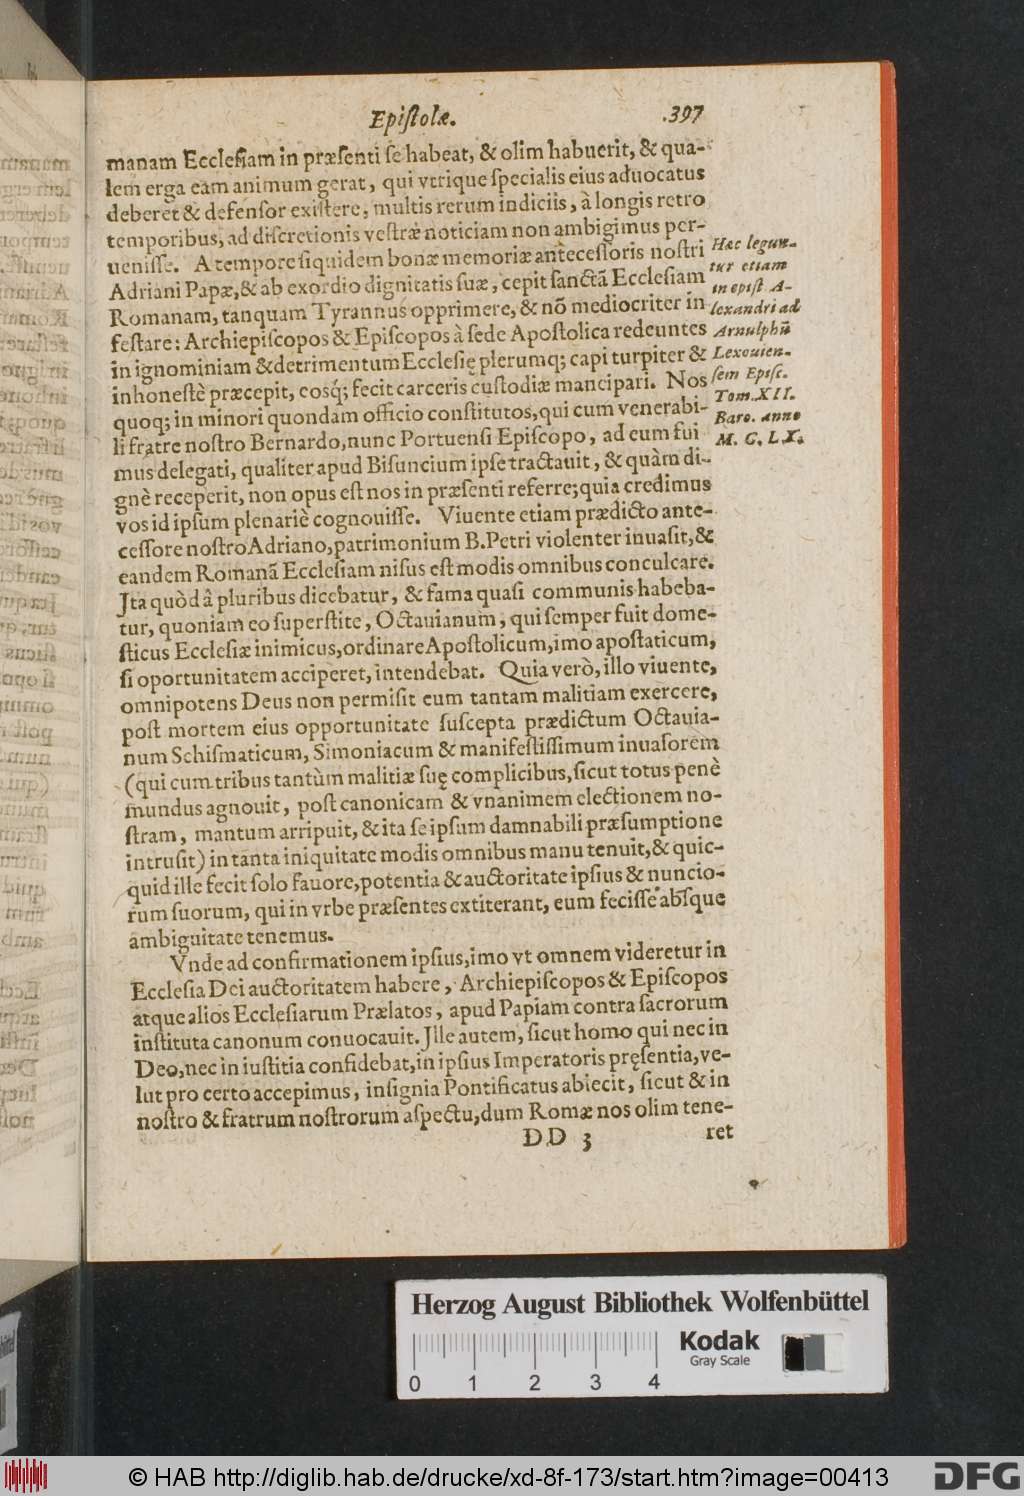 Epistolæ. 397
manam Ecclesiam in præsenti se habeat, & olim habuerit, & qua-
lem erga eam animum gerat, qui vtrique specialis eius aduocatus
deberet & defensor existere, multis rerum indiciis, à longis retro
temporibus, ad discretionis vestræ noticiam non ambigimus per-
uenisse. A tempore siquidem bonæ memoriæ antecessoris nostri
Adriani Papæ, & ab exordio dignitatis suæ, cepit sanctã Ecclesiam
Romanam, tanquam Tyrannus opprimere, & nõ mediocriter in
festare: Archiepiscopos & Episcopos à sede Apostolica redeuntes
in ignominiam & detrimentum Ecclesię plerumq; capi turpiter &
inhonestè præcepit, cosq́; fecit carceris custodiæ mancipari. Nos
quoq; in minori quondam officio constitutos, qui cum venerabi-
li fratre nostro Bernardo, nunc Portuensi Episcopo, ad eum fui
mus delegati, qualiter apud Bisuncium ipse tractauit, & quàm di-
gnè receperit, non opus est nos in præsenti referre; quia credimus
vos id ipsum plenariè cognouisse. Viuente etiam prædicto ante-
cessore nostro Adriano, patrimonium B. Petri violenter inuasit, &
eandem Romanã Ecclesiam nisus est modis omnibus conculcare.
Ita quòd à pluribus dicebatur, & fama quasi communis habeba-
tur, quoniam eo superstite, Octauianum, qui semper fuit dome-
sticus Ecclesiæ inimicus, ordinare Apostolicum, imo apostaticum,
si oportunitatem acciperet, intendebat. Quia verò, illo viuente,
omnipotens Deus non permisit eum tantam malitiam exercere,
post mortem eius opportunitate suscepta prædictum Octauia-
num Schismaticum, Simoniacum & manifestissimum inuasorem
(qui cum tribus tantùm malitiæ suę complicibus, sicut totus penè
mundus agnouit, post canonicam & vnanimem electionem no-
stram, mantum arripuit, & ita se ipsum damnabili præsumptione
intrusit) in tanta iniquitate modis omnibus manu tenuit, & quic-
quid ille fecit solo fauore, potentia & auctoritate ipsius & nuncio-
rum suorum, qui in vrbe præsentes extiterant, eum fecisse absque
ambiguitate tenemus.
Vnde ad confirmationem ipsius, imo vt omnem videretur in
Ecclesia Dei auctoritatem habere, Archiepiscopos & Episcopos
atque alios Ecclesiarum Prælatos, apud Papiam contra sacrorum
instituta canonum conuocauit. Ille autem, sicut homo qui nec in
Deo, nec in iustitia confidebat, in ipsius Imperatoris pręsentia, ve-
lut pro certo accepimus, insignia Pontificatus abiecit, sicut & in
nostro & fratrum nostrorum aspectu, dum Romæ nos olim tene-
DD 3 ret
Hæc legun-
tur etiam
in epist. A-
lexandri ad
Arnulphũ
Lexouien-
sem Episc.
Tom. XII.
Baro. anno
M. C. LX.
Herzog August Bibliothek Wolfenbüttel
Kodak
Gray Scale
0 1 2 3 4
© HAB http://diglib.hab.de/drucke/xd-8f-173/start.htm?image=00413
DFG